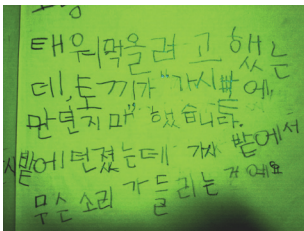 태워먹을려고 했는
데!, 토끼가 "가시밭에,
만 던지마" 했습니다.
시밭에던졌는데 가시 밭에서
무슨 소리 가들리는 거예요